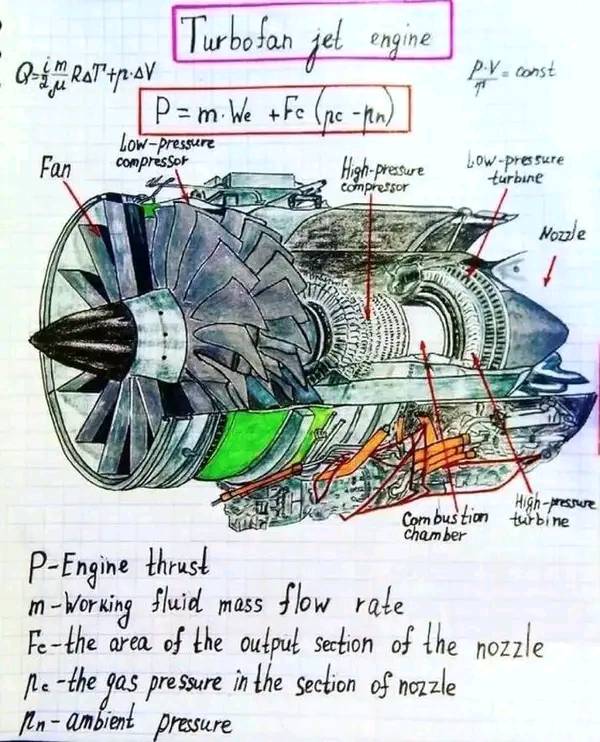 Turbofan jet engine
Q=i/2 m/μ RΔT+p·ΔV
p·V/T = const
P = m·We + Fc (pc - pn)
Fan
Low-pressure
compressor
High-pressure
compressor
Low-pressure
turbine
Nozzle
Combustion
chamber
High-pressure
turbine
P-Engine thrust
m-Working fluid mass flow rate
Fc-the area of the output section of the nozzle
pc-the gas pressure in the section of nozzle
pn-ambient pressure